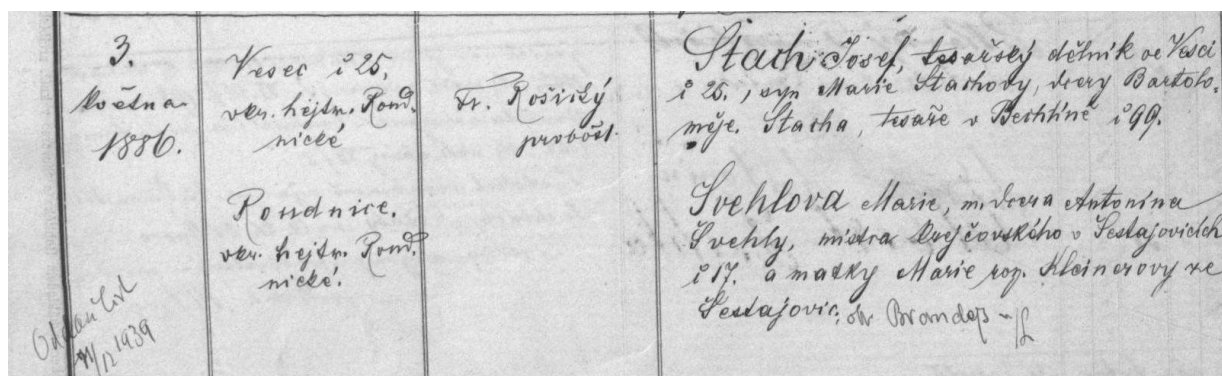 3.
května
1886.
Vesec č 25.
okr. hejtm. Roud.
nické
Roudnice.
okr. hejtm. Roud.
nické.
Fr. Rošický
probošt.
Stach Josef, tesařský dělník ve Vesci
č 25., syn Marie Stachovy, dcery Bartolo-
měje. Stacha, tesaře v Bechlíně č 99.
Švehlova Marie, m. dcera Antonína
Švehly, mistra krejčovského v Šestajovicích
č 17. a matky Marie roz. Kleinerovy ze
Šestajovic, okr Brandýs
Oddací list
1939